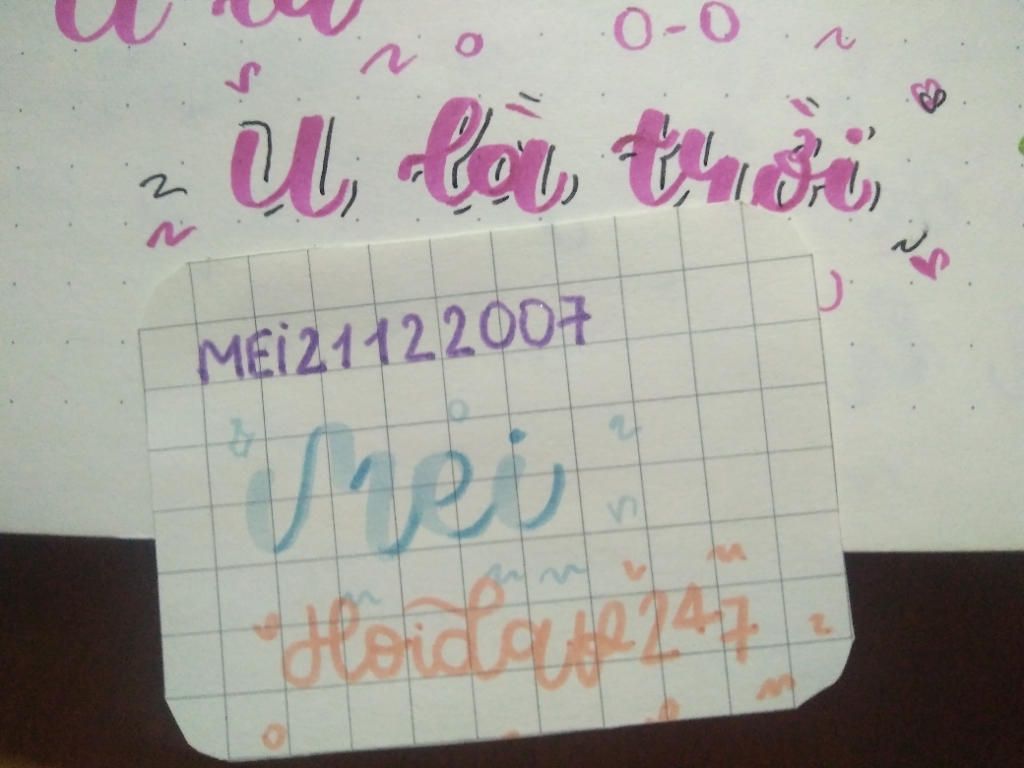 U là
0-0
U là trời
MEi21122007
Mei
Hoidap247